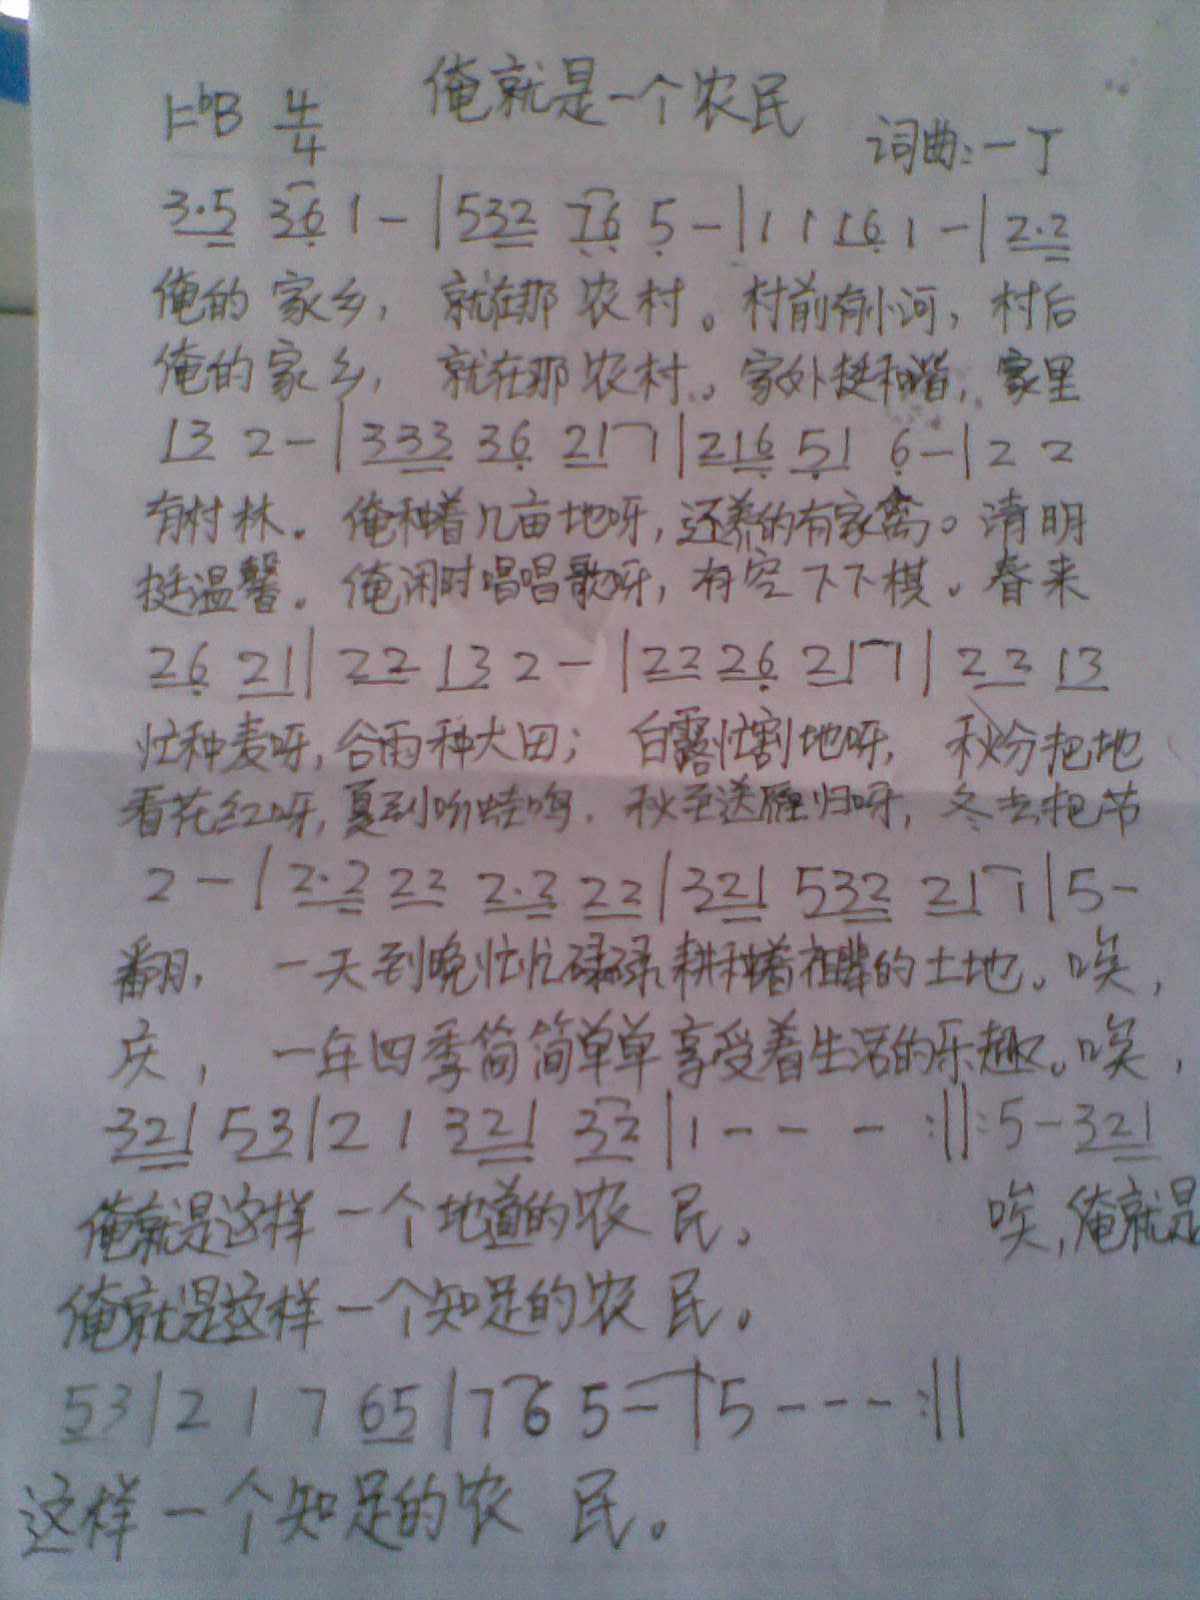 俺就是一个农民
1=bB 4/4
词曲:一丁
3·5 36 1 - | 532 76 5 - | 1 1 16 1 - | 2·2
俺的家乡, 就在那农村。村前有小河, 村后
俺的家乡, 就在那农村。家外挺和谐, 家里
13 2 - | 333 36 21 1 | 216 51 6 - | 2 2
有树林。俺种着几亩地呀, 还养的有家禽。清明
挺温馨。俺闲时唱唱歌呀, 有空下下棋。春来
26 21 | 22 13 2 - | 22 26 21 1 | 22 13
忙种麦呀, 谷雨种大田; 白露忙割地呀, 秋分把地
看花红呀, 夏到听蛙鸣. 秋至送雁归呀, 冬去把节
2 - | 2·2 22 2·2 22 | 321 532 21 1 | 5 -
翻, 一天到晚忙忙碌碌, 耕种着祖辈的土地。唉,
庆, 一年四季简简单单享受着生活的乐趣。唉,
321 53 | 2 1 321 32 | 1 - - - :||: 5 - 321
俺就是这样一个地道的农民。 唉, 俺就是
俺就是这样一个知足的农民。
53 | 2 1 7 65 | 7 6 5 - | 5 - - - :||
这样一个知足的农民。